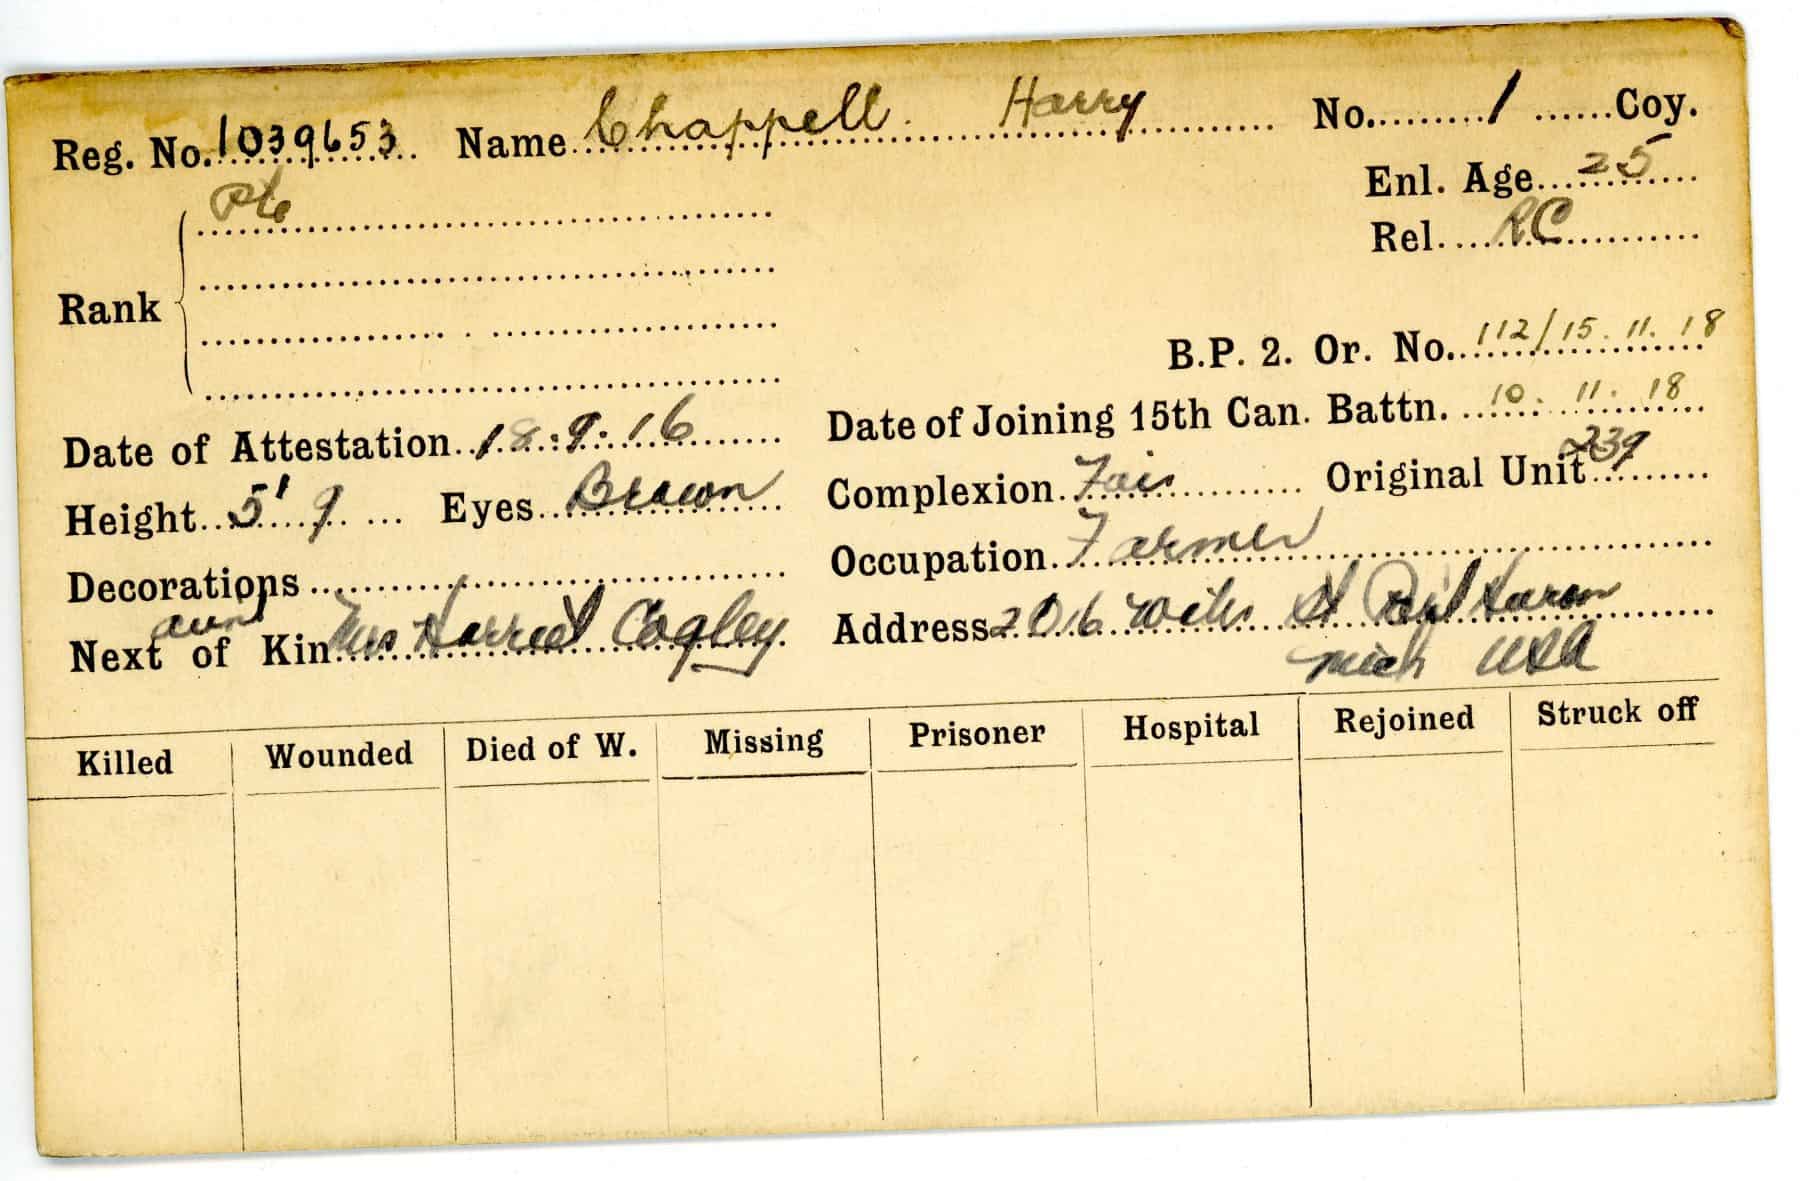 Reg. No. 1039653 Name Chappell Harry No. 1 Coy.
Pte
Enl. Age 25
Rel. RC
Rank
B.P. 2. Or. No. 112/15.11.18
Date of Attestation 18.9.16 Date of Joining 15th Can. Battn. 10.11.18
Height 5' 9 Eyes Brown Complexion Fair Original Unit 239
Decorations Occupation Farmer
aunt
Next of Kin Mrs Harriet Cogley Address 2016 St Port Huron
Mich USA
Killed Wounded Died of W. Missing Prisoner Hospital Rejoined Struck off